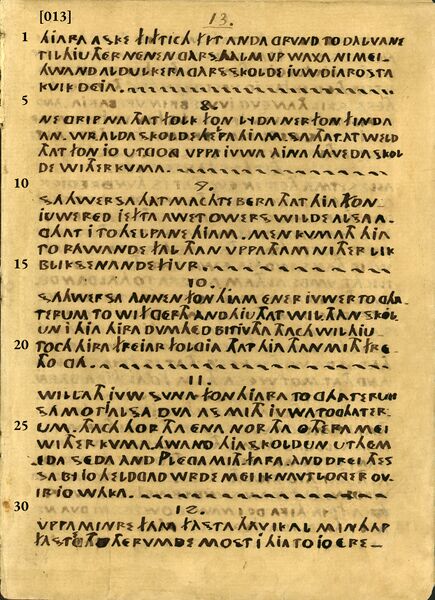 [013]
13.
1
HIARA ASKE FIFTICH FET ANDA GRUND TO DALVANE
TIL HIU THER NEN EN GARS HALM VP WAXA NI MEI.
HWAND AL DULKERA GARS SKOLDE IUW DIAROSTA
KVIK DEIA.
5
8.
NE GRIP NA THAT FOLK FON LYDA NER FON FINDA
AN. WRALDA SKOLDE HELPA HIAM SA THAT AT WELD
THAT FON IO UTGONG UPPA IUWA AINA HAVEDA SKOL
DE WITHERKUMA.
10
9.
SAHWERSA HAT MACHTE BERA THAT HIA FON
IUWE RED IEFTA AWET OWERS WILDE ALSA A-
GHAT I TO HELPANE HIAM. MEN KUMATH HIA
TO RAWANDE FAL THAN UPPA THAM NITHER LIK
15
BLIKSENANDE FIUR.
10.
SAHWERSA ANNEN FON HIAM ENER IUWER TOGHA-
TERUM TO WIF GERTH AND HIU THAT WIL THAN SKOL
UN I HIA HIRA DUMHED BITIUTHA THACH WIL HIU
20
TOCH HIRA FREIAR FOLGIA THAT HIA THAN MITH FRE-
THO GH.
11.
WILLATH IUW SUNA FON HIARA TOGHATERUM
SA MOT I ALSA DVA AS MITH IUWA TOGHATER-
25
UM. THACH HOR THA ENA NOR THA OTHERA MEI
WITHERKUMA. HWAND HIA SKOLDUN UTHEM
EDA SEDA AND PLEGA MITH FARA. AND DREI THES
SA BI IO HELDGAD WRDE MEI IK NAVT LONGER OV-
IR IO WAKA.
30
12.
UPPA MINRE FAM FASTA HAV IK AL MIN HAP
FASTETH THERUMDE MOST I HIA TO IO ERE-